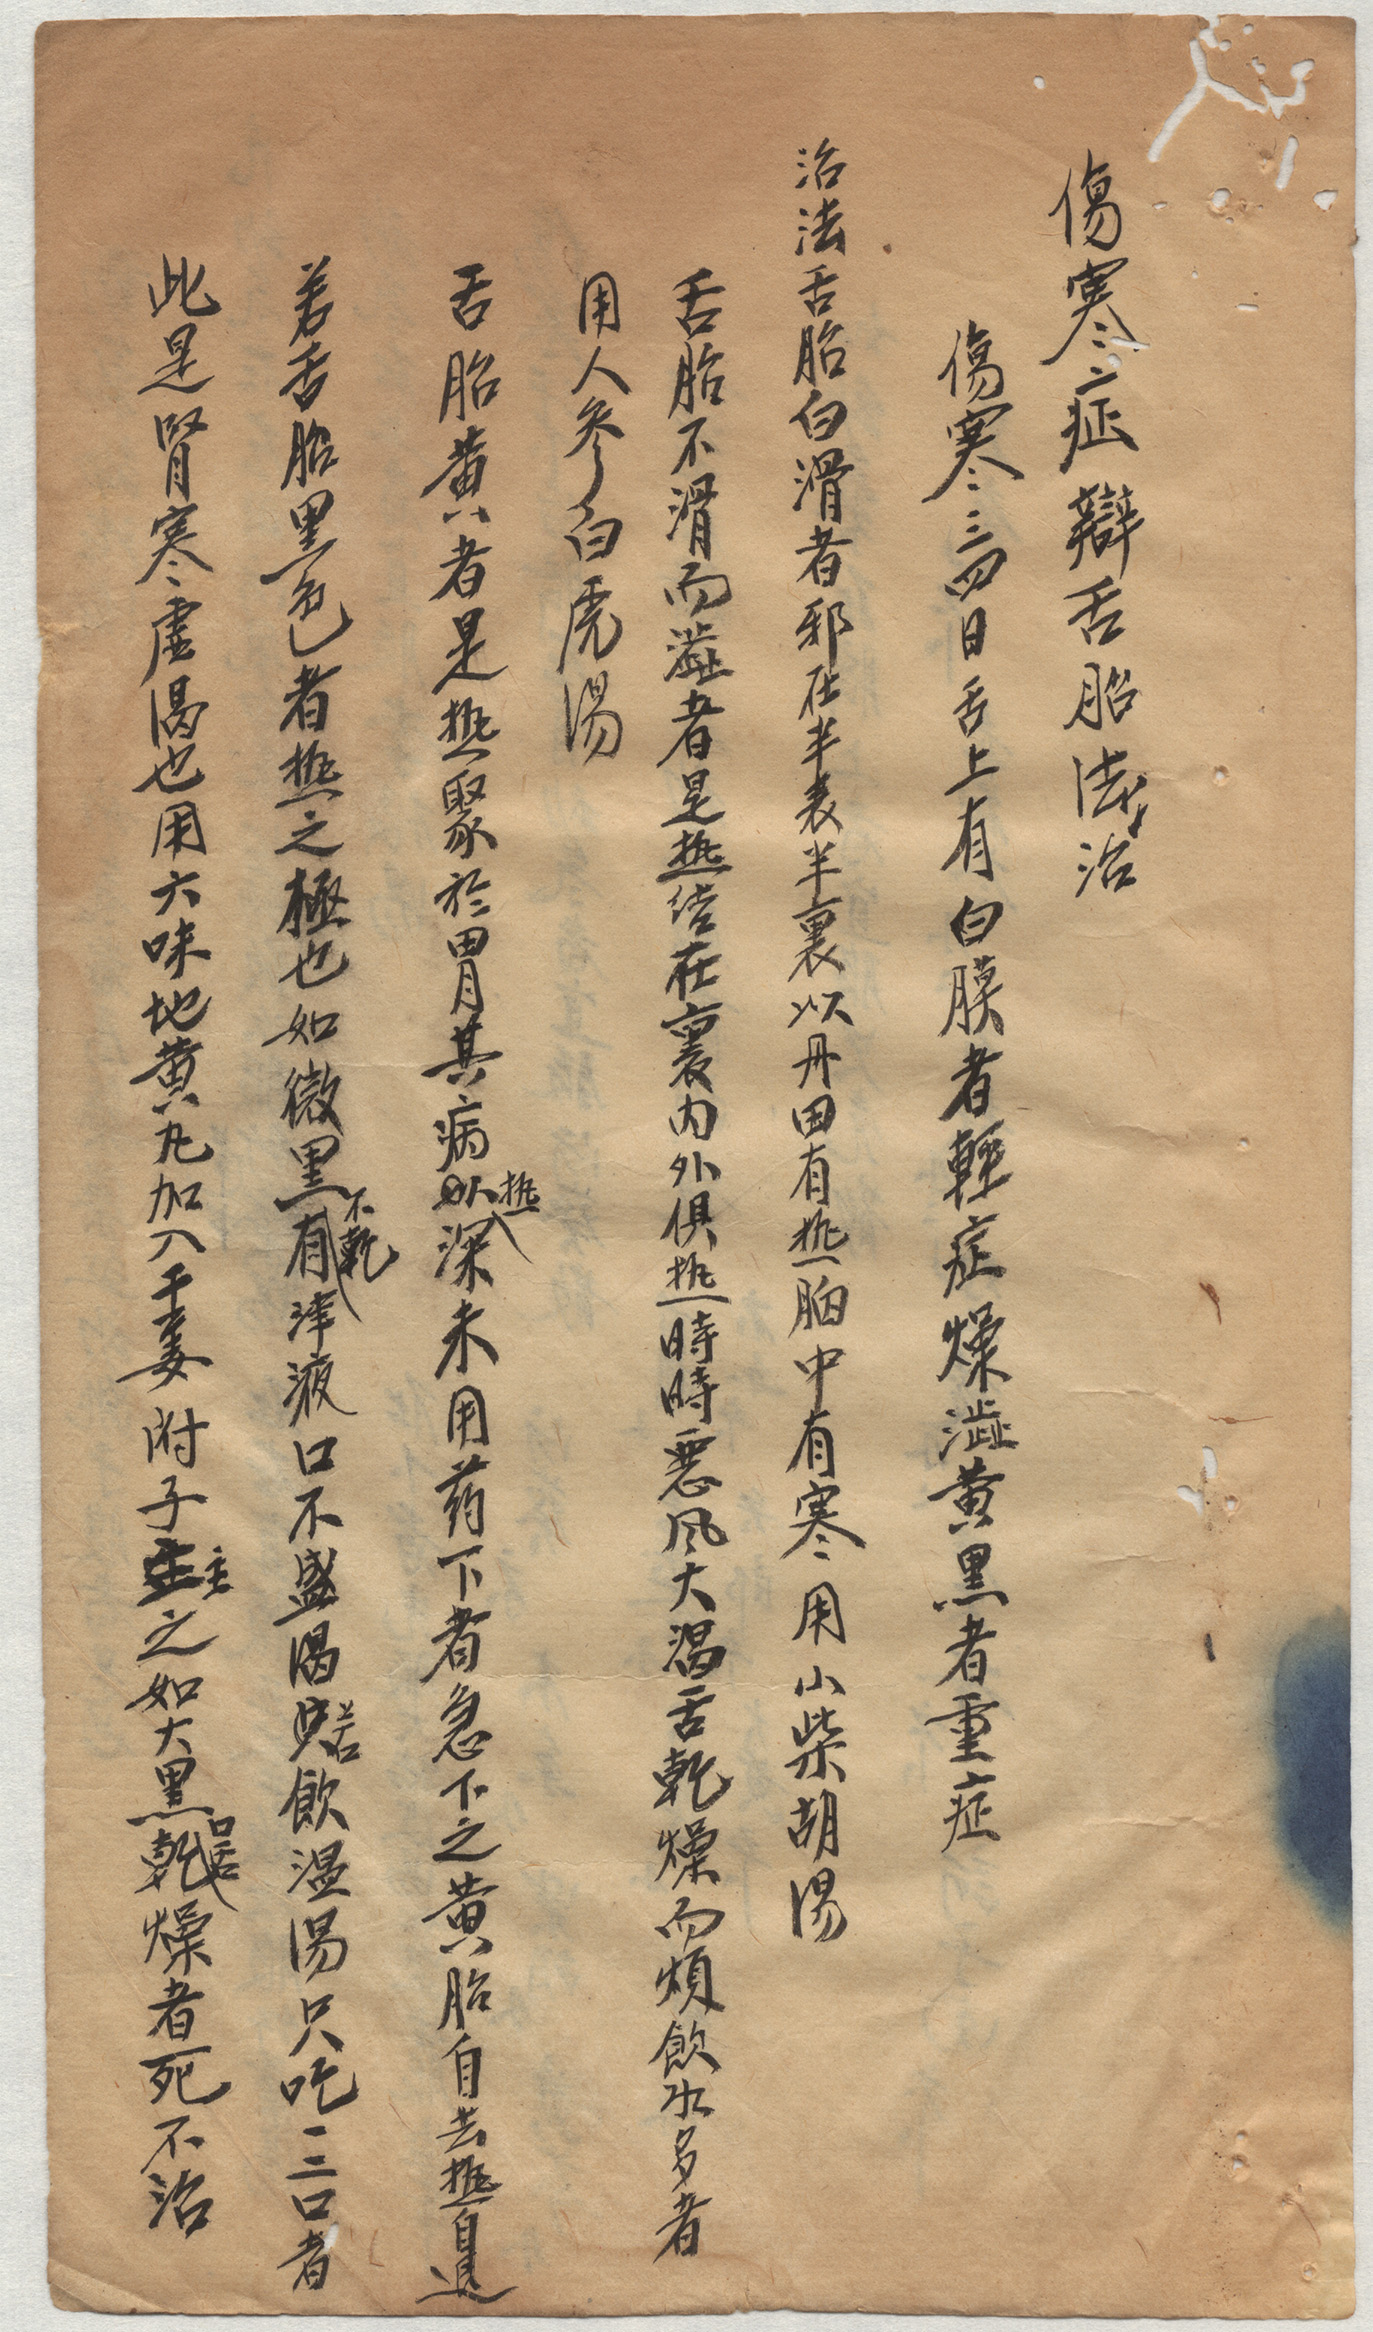 傷寒症辯舌胎法治
傷寒三四日舌上有白膜者輕症燥澁黄黑者重症
治法舌胎白滑者邪在半表半裏以丹田有热胸中有寒用小柴胡湯
舌胎不滑而澁者是热结在裏内外俱热時時惡风大渴舌乾燥而煩飲水多者
用人參白虎湯
舌胎黄者是热聚於胃其病热深未用药下者急下之黄胎自去热自退
若舌胎黑色者热之極也如微黑不乾有津液口不盛渴若飲温湯只吃二三口者
此是腎寒虚渴也用六味地黄丸加入干姜附子主之如大黑口舌乾燥者死不治